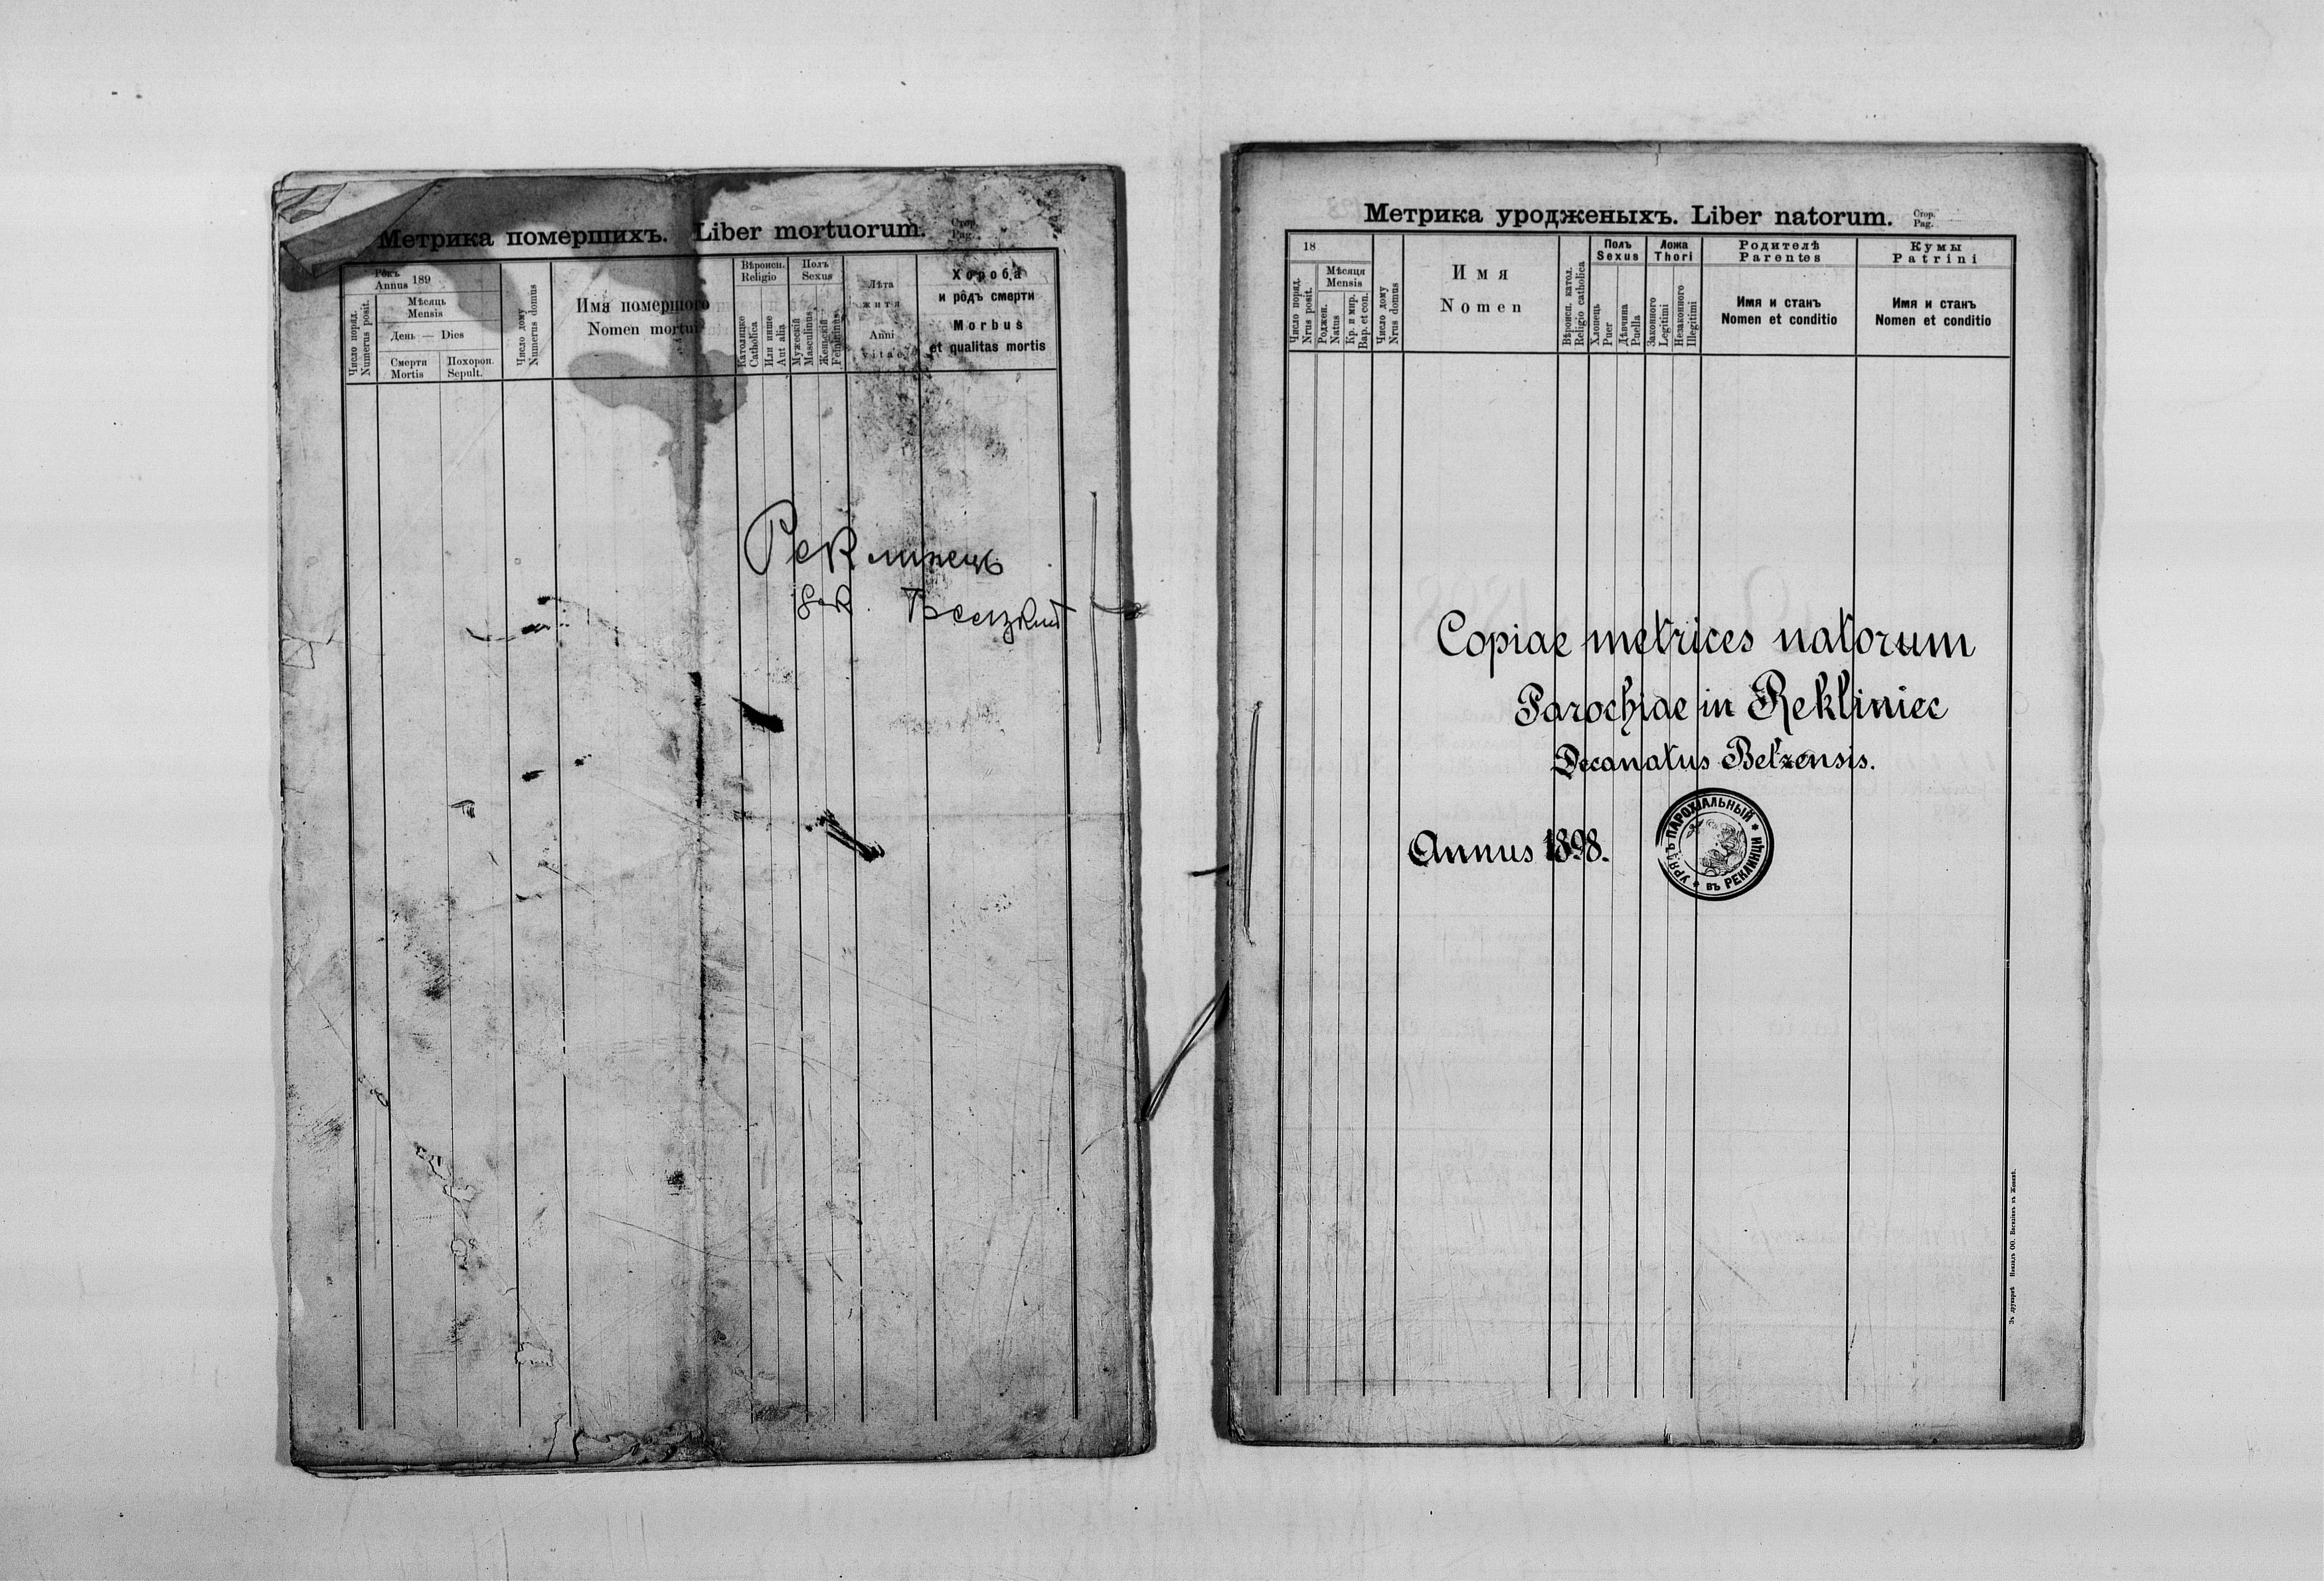 Метрика помершихъ. Liber mortuorum.
Стор.
Pag.
Рôкъ
Annus 189
Мѣсяць
Mensis
День — Dies
Число поряд.
Numerus posit.
Смерти
Mortis
Похорон.
Sepult.
Число дому
Numerus domus
Имя помершого
Nomen mortui
Вѣроисп.
Religio
Католицке
Catholica
Или инше
Aut alia
Полъ
Sexus
Мужескій
Masculinus
Женьскій
Femininus
Лѣта
житя
Anni
vitae
Хороба
и рôдъ смерти
Morbus
et qualitas mortis
Реклинець
дек. Белзкий
Метрика уродженыхъ. Liber natorum.
Стор.
Pag.
18
Число поряд.
Nrus posit.
Мѣсяця
Mensis
Роджен.
Natus
Кр. и мир.
Bap. et con.
Число дому
Nrus domus
Имя
Nomen
Вѣроисп. катол.
Religio catholica
Полъ
Sexus
Хлопець
Puer
Дѣвчина
Puella
Ложа
Thori
Законного
Legitimi
Незаконного
Illegitimi
Родителѣ
Parentes
Имя и станъ
Nomen et conditio
Кумы
Patrini
Имя и станъ
Nomen et conditio
Copiae metrices natorum
Parochiae in Rekliniec
Decanatus Belzensis.
Annus 1898.
УРЯДЪ ПАРОХІАЛЬНЫЙ * ВЪ РЕКЛИНЦИ *
Зъ друкарнѣ